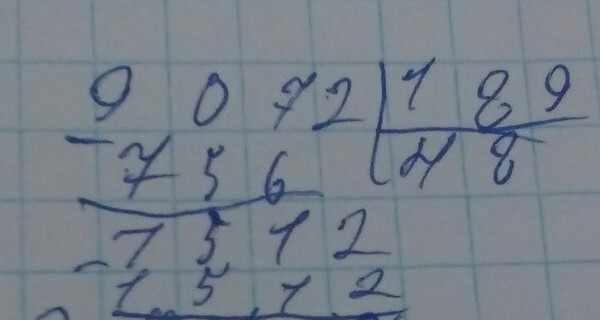 9072 189
- 756 48
- 1512
1512